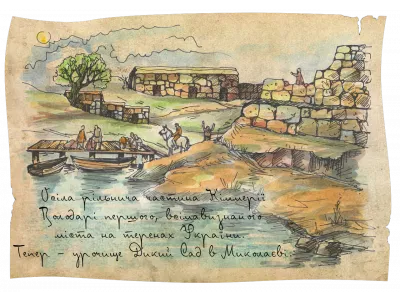 Осіла рільнича частина Кіммерії
Володарі першого, всімавизнайого
міста на теренах України.
Тепер – урочище Дикий Сад в Миколаєві.